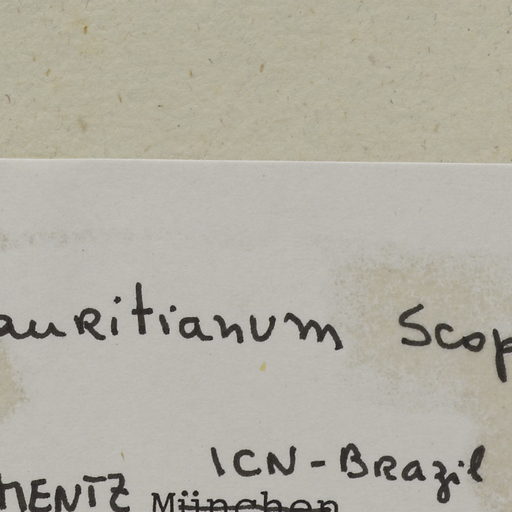 auritianum Scop
ICN-Brazil
MENTZ München